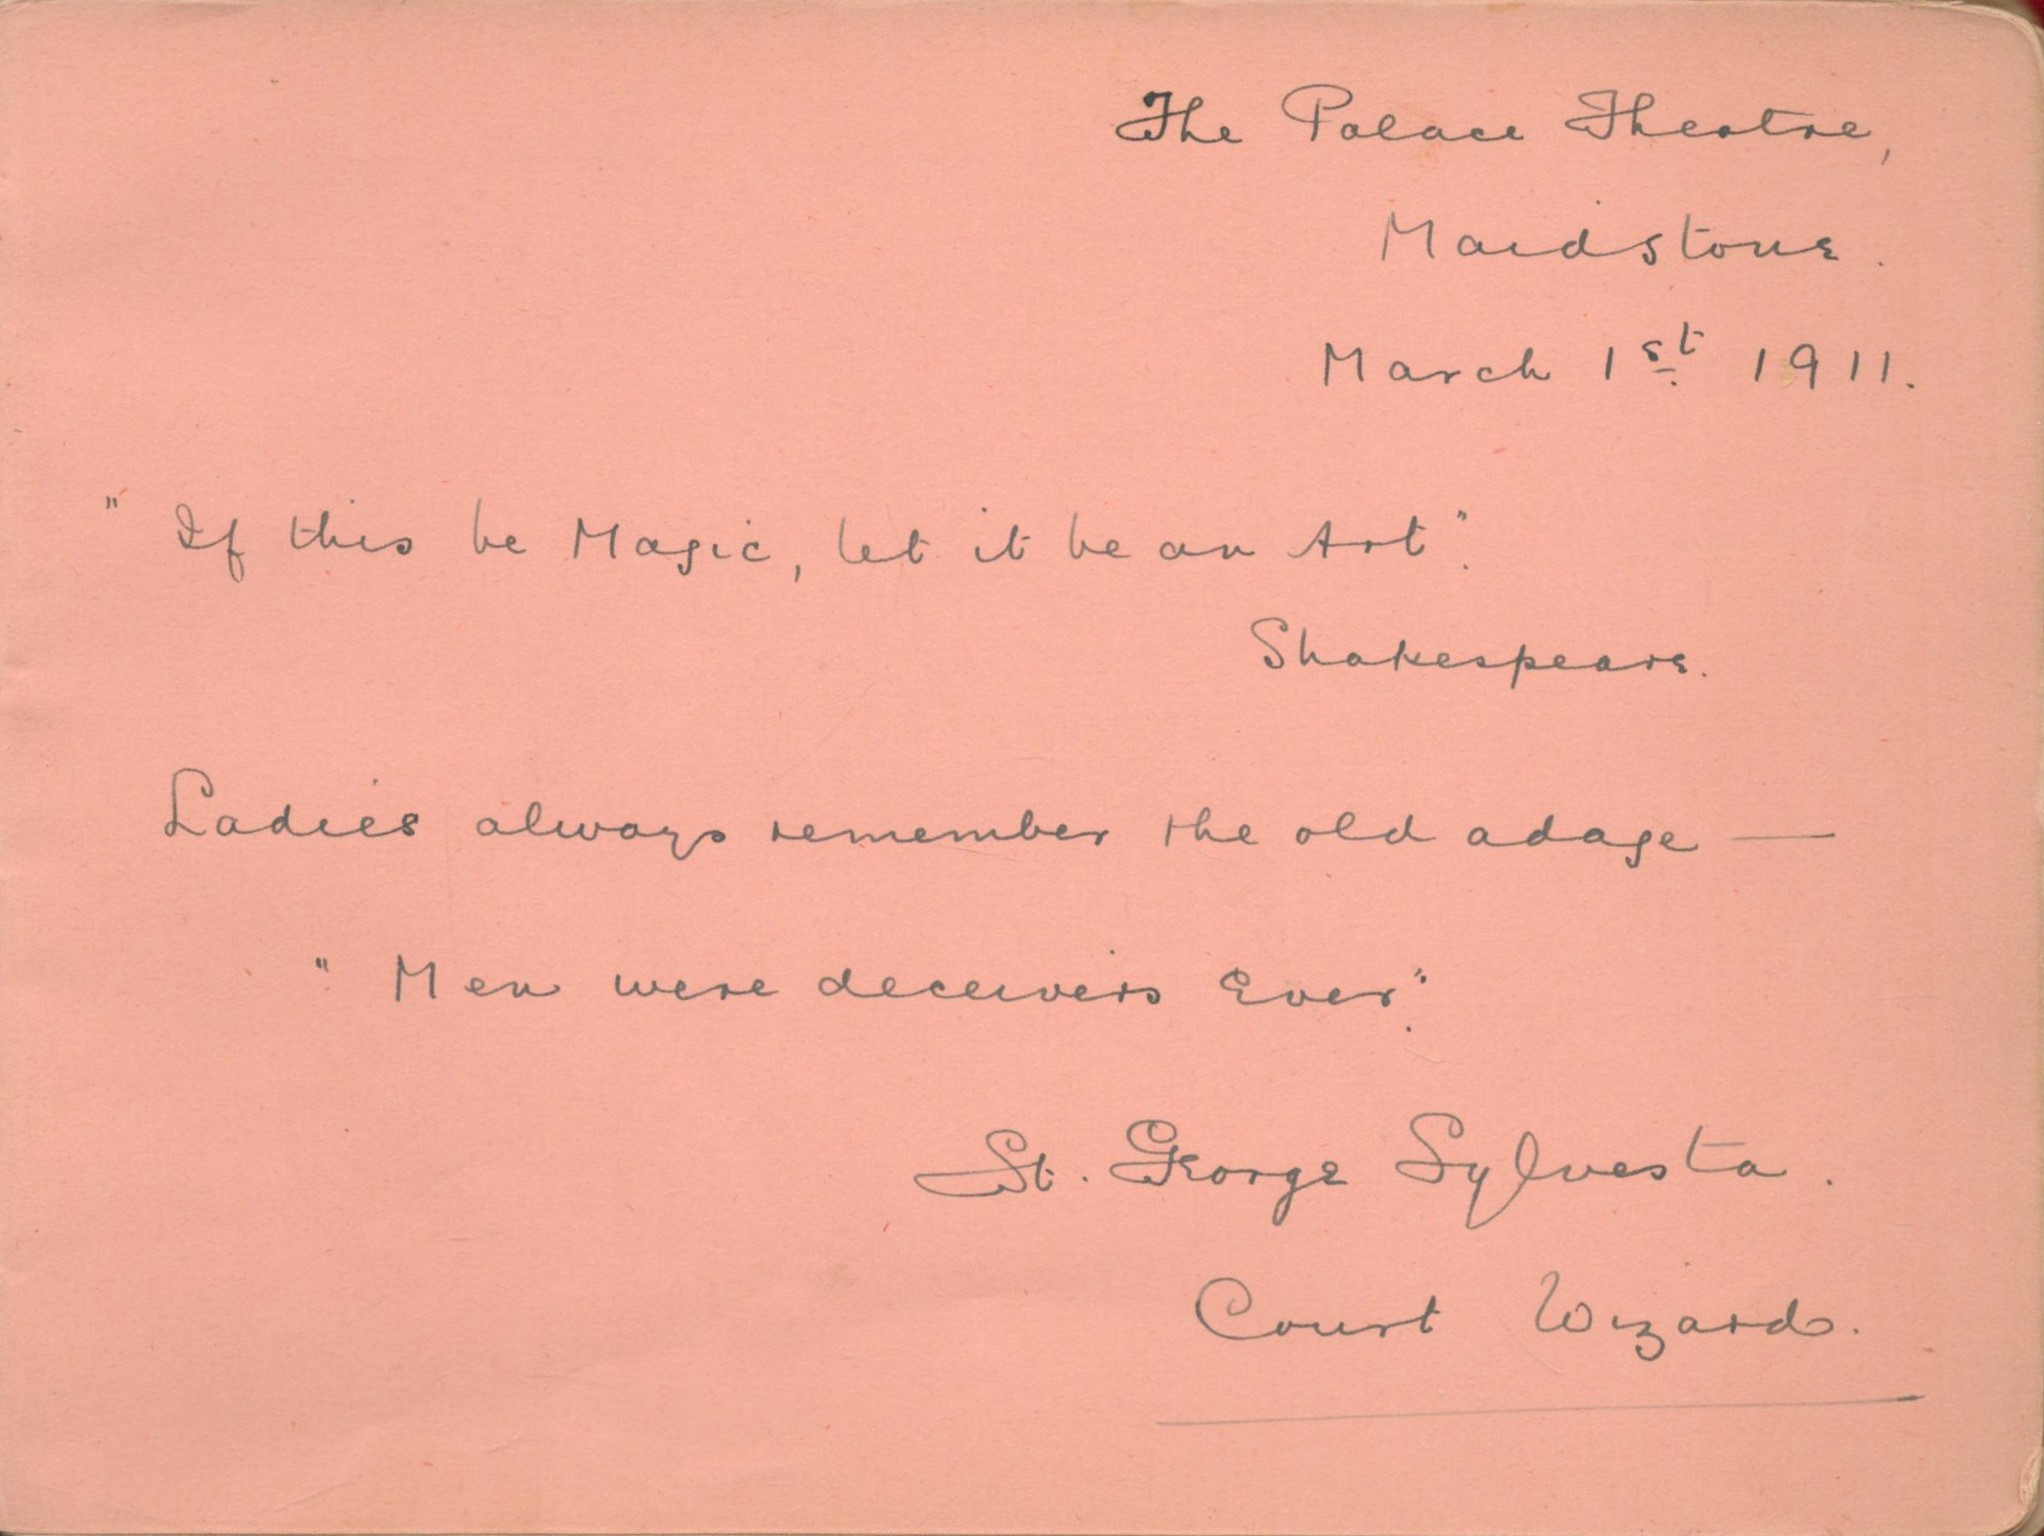 The Palace Theatre,
Maidstone.
March 1st 1911.
" If this be Magic, let it be an Art".
Shakespeare.
Ladies always remember the old adage —
" Men were deceivers Ever".
St. George Sylvesta.
Court Wizard.